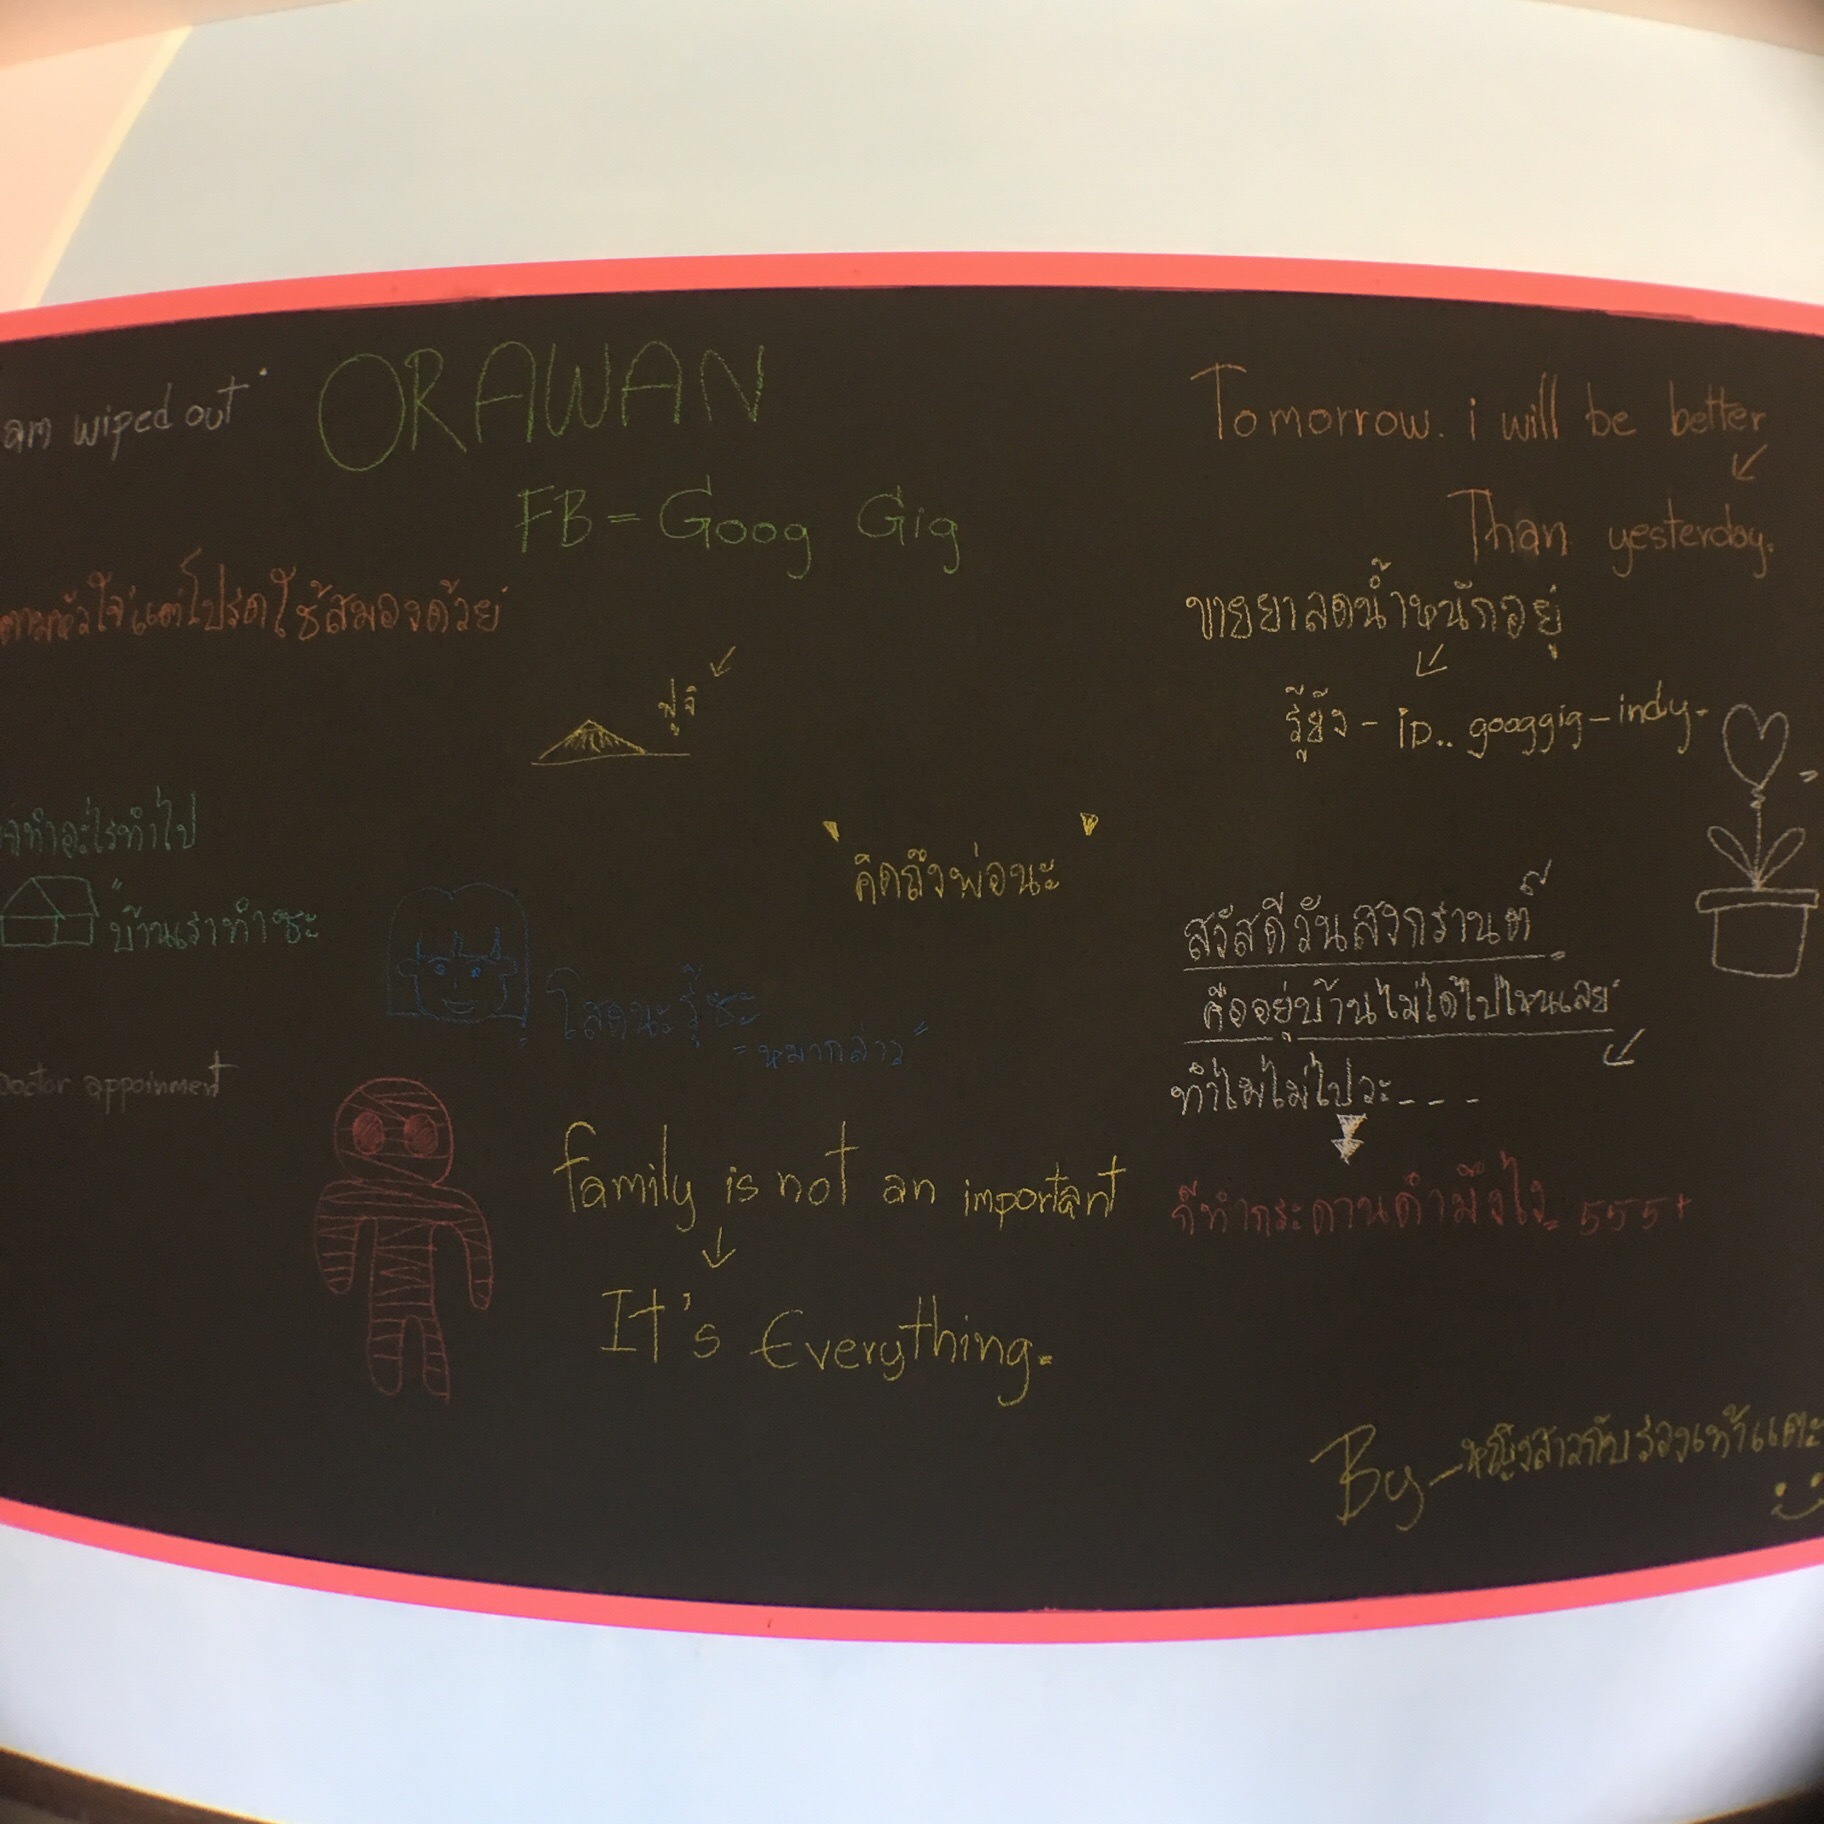 am wiped out"
ORAWAN
FB = Goog Gig
ตามหัวใจแต่โปรดใช้สมองด้วย
ฟูจิ
ทำอะไรทำไป
"บ้านเราทำซะ
"คิดถึงพ่อนะ"
โสดนะรู้ซะ
Doctor appoinment
family is not an important
It's Everything.
Tomorrow. i will be better
Than yesterday.
ขายยาลดน้ำหนักอยู่
รู้ยัง - iD.. googgig-indy.
สวัสดีวันสงกรานต์
คืออยู่บ้านไม่ได้ไปไหนเลย
ทำไมไม่ไปวะ---
ก็ทำกระดานดำมึงไง 555+
By-หญิงสาวกับรองเท้าแตะ